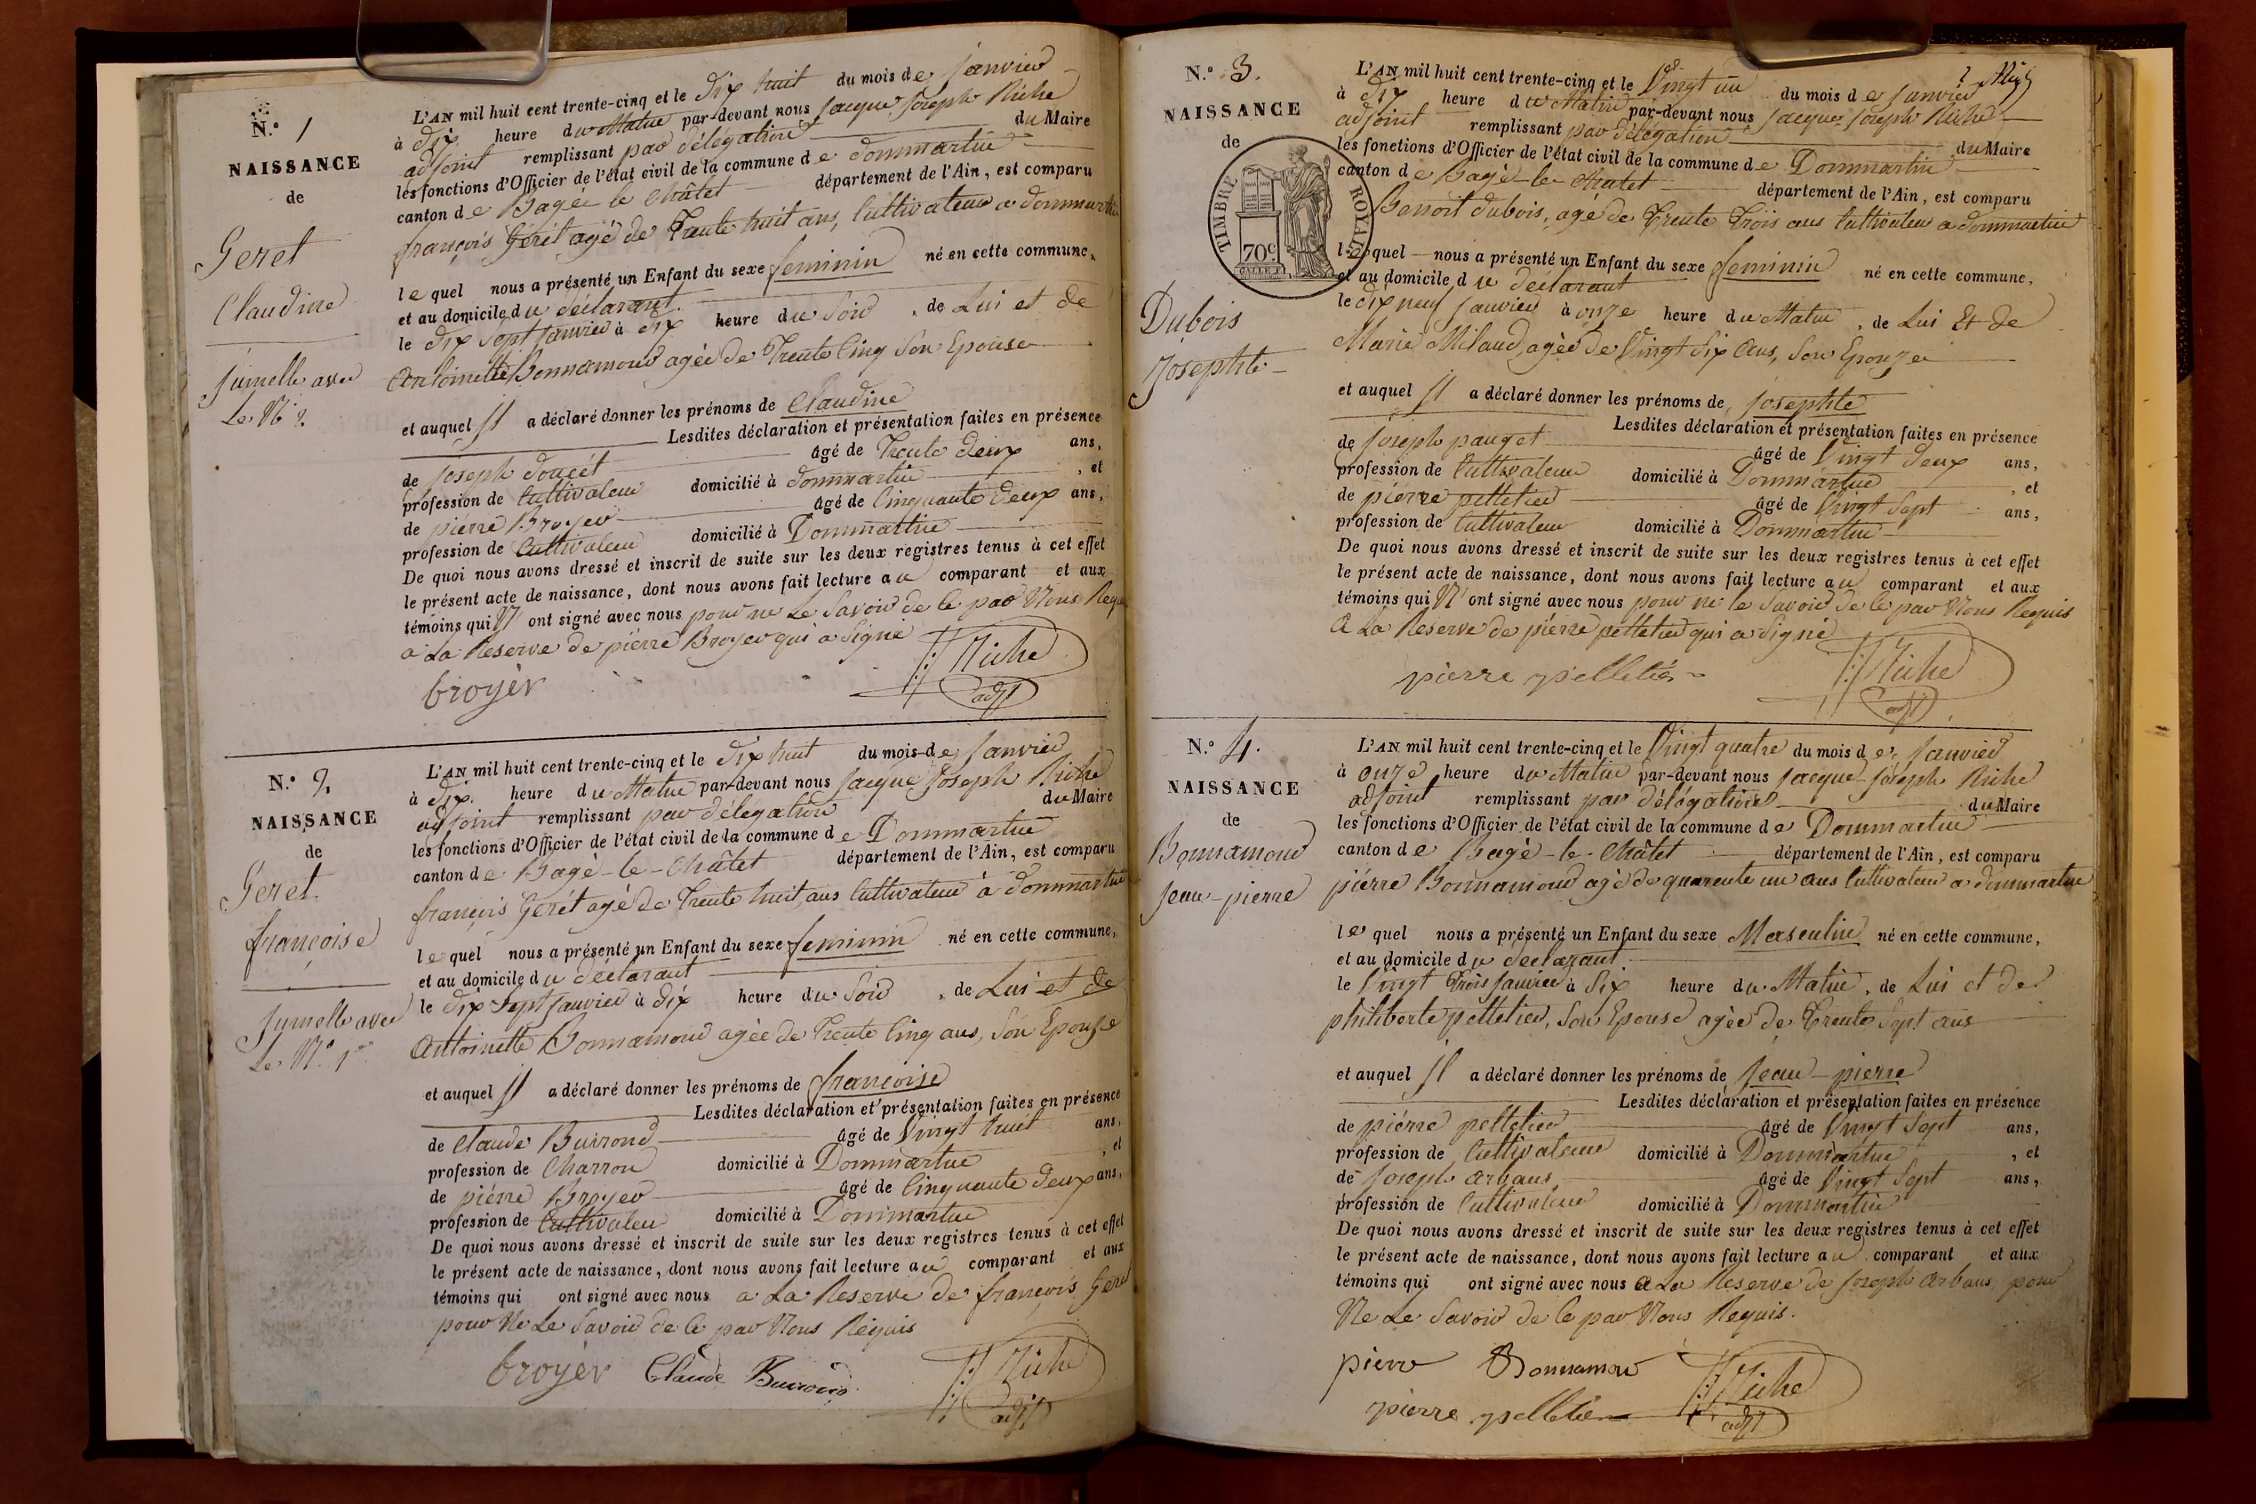 N.º 1
NAISSANCE
de
Geret
Claudine
jumelle avec
Le Nº 2.
L'AN mil huit cent trente-cinq et le dix huit du mois de janvier
à dix heure du Matin par-devant nous jacque joseph Riche
adjoint remplissant par délégation du Maire
les fonctions d'Officier de l'état civil de la commune de dommartin
canton de Bagé le Châtel département de l'Ain, est comparu
françois Gerét agé de Trente huit ans, Cultivateur a dommartin
le quel nous a présenté un Enfant du sexe feminin né en cette commune,
et au domicile du déclarant.
le dix sept janvier à dix heure du Soir, de Lui et de
Antoinette Bonnamour agée de Trente Cinq Son Epouse
et auquel Il a déclaré donner les prénoms de Claudine
Lesdites déclaration et présentation faites en présence
de joseph doucét âgé de Trente deux ans,
profession de Cultivateur domicilié à dommartin, et
de piérre Broyer âgé de Cinquante deux ans,
profession de Cultivateur domicilié à Dommartin
De quoi nous avons dressé et inscrit de suite sur les deux registres tenus à cet effet
le présent acte de naissance, dont nous avons fait lecture au comparant et aux
témoins qui N' ont signé avec nous pour ne Le Savoir de Ce par Nous Requis
a La Reserve de piérre Broyer qui a Signé
broyér
Riche
adjt
N.º 2.
NAISSANCE
de
Geret
françoise
jumelle avec
Le Nº 1er
L'AN mil huit cent trente-cinq et le dix huit du mois de janvier
à dix. heure du Matin par-devant nous jacque joseph Riche
adjoint remplissant par délégation du Maire
les fonctions d'Officier de l'état civil de la commune de Dommartin
canton de Bagé-le-Châtel département de l'Ain, est comparu
françois Gerét agé de Trente huit ans Cultivateur à dommartin
le quel nous a présenté un Enfant du sexe feminin né en cette commune,
et au domicile du déclarant
le dix sept janvier à dix heure du Soir, de Lui et de
Antoinette Bonnamour agée de Trente Cinq ans, Son Epouse
et auquel Il a déclaré donner les prénoms de françoise
Lesdites déclaration et présentation faites en présence
de Claude Buirond âgé de Vingt huit ans,
profession de Charron domicilié à Dommartin, et
de piérre Broyer âgé de Cinquante deux ans,
profession de Cultivateur domicilié à Dommartin
De quoi nous avons dressé et inscrit de suite sur les deux registres tenus à cet effet
le présent acte de naissance, dont nous avons fait lecture au comparant et aux
témoins qui ont signé avec nous a La Reserve de françois Geret
pour Ne Le Savoir de Ce par Nous Requis
broyér Claude Buirond
Riche
adjt
N.º 3.
NAISSANCE
de
TIMBRE ROYAL
70c
Dubois
Josephte
L'AN mil huit cent trente-cinq et le Vingt un du mois de janvier
à dix heure du Matin par-devant nous jacque joseph Riche
adjoint remplissant par délégation du Maire
les fonctions d'Officier de l'état civil de la commune de Dommartin
canton de Bagé-le-Chatel département de l'Ain, est comparu
Benoit dubois, agé de Trente Trois ans Cultivateur a dommartin
le quel nous a présenté un Enfant du sexe feminin né en cette commune,
et au domicile du déclarant
le dix neuf janvier à onze heure du Matin, de Lui Et de
Marie Milaud, agée de Vingt Six Ans, Son Epouze
et auquel Il a déclaré donner les prénoms de josephte
Lesdites déclaration et présentation faites en présence
de joseph pauget âgé de Vingt deux ans,
profession de Cultivateur domicilié à Dommartin, et
de piérre pelletier âgé de Vingt Sept ans,
profession de Cultivateur domicilié à Dommartin
De quoi nous avons dressé et inscrit de suite sur les deux registres tenus à cet effet
le présent acte de naissance, dont nous avons fait lecture au comparant et aux
témoins qui N' ont signé avec nous pour ne le Savoir de Ce par Nous Requis
a La Reserve de piérre pelletier qui a Signé
pierre pelletier
Riche
adjt
N.º 4.
NAISSANCE
de
Bonnamour
jean-pierre
L'AN mil huit cent trente-cinq et le Vingt quatre du mois de janvier
à onze heure du Matin par-devant nous jacque joseph Riche
adjoint remplissant par délégation du Maire
les fonctions d'Officier de l'état civil de la commune de Dommartin
canton de Bagé-le-Châtel département de l'Ain, est comparu
piérre Bonnamour agé de quarente un ans Cultivateur a dommartin
le quel nous a présenté un Enfant du sexe Masculin né en cette commune,
et au domicile du déclarant
le Vingt Trois janvier à Six heure du Matin, de Lui et de
philiberte pelletier, Son Epouse agée de Trente Sept ans
et auquel Il a déclaré donner les prénoms de jean-pierre
Lesdites déclaration et présentation faites en présence
de piérre pelletier âgé de Vingt Sept ans,
profession de Cultivateur domicilié à Dommartin, et
de joseph arbans âgé de Vingt Sept ans,
profession de Cultivateur domicilié à Dommartin
De quoi nous avons dressé et inscrit de suite sur les deux registres tenus à cet effet
le présent acte de naissance, dont nous avons fait lecture au comparant et aux
témoins qui ont signé avec nous a La Reserve de joseph arbans pour
Ne Le Savoir de Ce par Nous Requis.
pierre Bonnamour
Riche
pierre pelletier
adjt